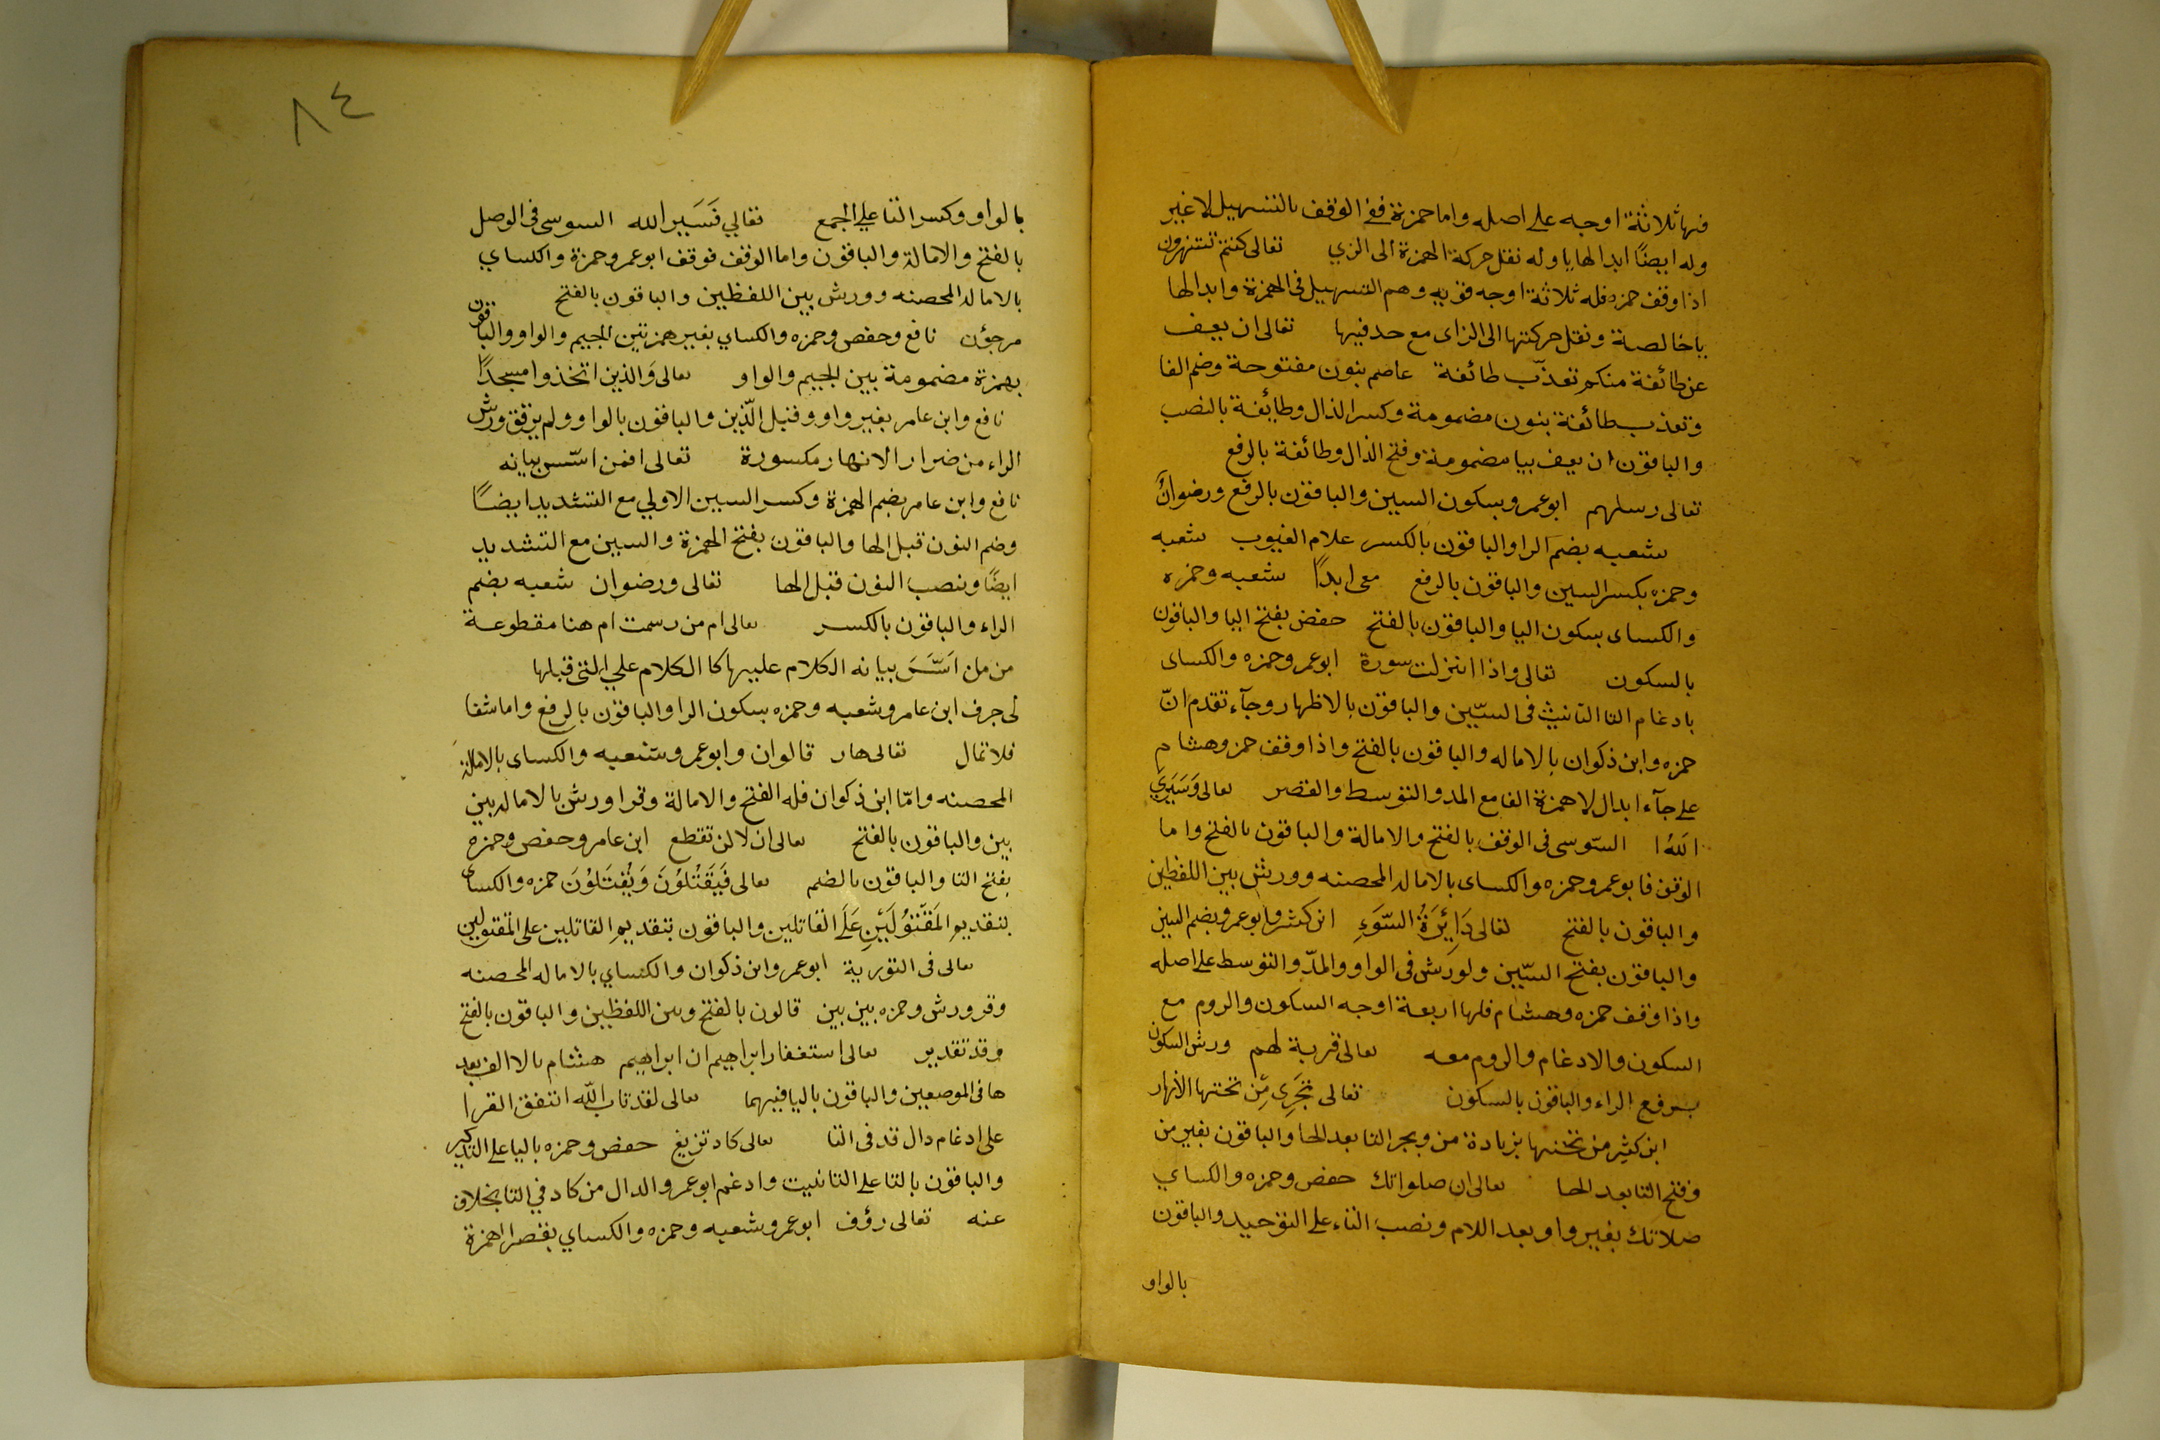 فيها ثلاثة اوجه على اصله واما حمزة ففي الوقف بالتسهيل لا غير
وله ايضًا ابدالها يا وله نقل حركة الهمزة الى الزي تعالى كنتم تستهزون
اذا وقف حمزه فله ثلاثة اوجه قويه وهم التسهيل في الهمزة وابدالها
يا خالصة ونقل حركتها الى الزاى مع حدفيها تعالى ان يعف
عن طائفة منكم تعذّب طائفة عاصم بنون مفتوحة وضم الفا
وتعذب طائفة بنون مضمومة وكسر الذال وطائفة بالنصب
والباقون ان يعف بيا مضمومة وفتح الذال وطائفة بالرفع
تعالى رسلهم ابو عمرو بسكون السين والباقون بالرفع ورضوانٌ
شعبه بضم الرا والباقون بالكسر علام الغيوب شعبه
وحمزه بكسر السين والباقون بالرفع معى ابدًا شعبه وحمزه
والكساى بسكون اليا والباقون بالفتح حفص بفتح اليا والباقون
بالسكون تعالى واذا انزلت سورة ابو عمرو وحمزه والكساى
بادغام التا التانيث فى السّين والباقون بالاظهار وجآء تقدم انّ
حمزه وابن ذكوان بالاماله والباقون بالفتح واذا وقف حمزه وهشام
على جآء ابدال لاهمزة الفا مع المد والتوسط والقصر تعالى وَسَيَرَي
اللهُ ا السّوسى فى الوقف بالفتح والامالة والباقون بالفتح واما
الوقف فابو عمرو وحمزه والكساى بالاماله المحصنه وورش بين اللفظين
والباقون بالفتح تعالى دَائِرَةُ السّوَءِ ابن كثير وابو عمرو بضم السين
والباقون بفتح السّين ولورش فى الواو والمدّ والتوسط على اصله
واذا وقف حمزه وهشام فلها اربعة اوجه السكون والروم مع
السكون والادغام والروم معه تعالى قربة لهم ورش السكون
برفع الراء والباقون بالسكون تعالى تجَرِى مِن تحتها الانهار
ابن كثير من تحتها بزيادة من وبجر التا بعد الحا والباقون بغير من
وفتح التا بعد الحا تعالى ان صلواتك حفص وحمزه والكساي
صلاتك بغير واو بعد اللام ونصب التاء على التوحيد والباقون
بالواو
٨٤
بالواو وكسر التا على الجمع تعالي فَسَيَرالله السوسى فى الوصل
بالفتح والامالة والباقون واما الوقف فوقف ابو عمرو وحمزة والكساي
بالاماله المحصنه وورش بين اللفظين والباقون بالفتح
مرجؤن نافع وحفص وحمزه والكساي بغير همز بين الجيم والواو والباقون
بهمزة مضمومة بين الجيم والواو تعالى وَالذين اتخذوا مسجدًا
نافع وابن عامر بغير واو وقبل الّذين والباقون بالواو ولم يرقق ورش
الراء من ضرار الانهار مكسورة تعالى افمن اسّس بيانه
نافع وابن عامر بضم الهمزة وكسر السين الاولي مع التشديد ايضًا
وضم النون قبل الها والباقون بفتح الهمزة والسين مع التشديد
ايضًا ونصب النون قبل الها تعالى ورضوان شعبه بضم
الراء والباقون بالكسر تعالى ام من رسمت ام هنا مقطوعة
من من اَسّسَ بيانه الكلام عليها كا الكلام علي التى قبلها
لى جرف ابن عامر وشعبه وحمزه بسكون الرا والباقون بالرفع واما شفا
فلا تمال تعالى هار قالوان وابو عمرو وشعبه والكساى بالامالة
المحصنه وامّا ابن ذكوان فله الفتح والامالة وقرا ورش بالاماله بين
بين والباقون بالفتح تعالى ان لا لن تقطع ابن عامر وحفص وحمزه
بفتح التا والباقون بالضم تعالى فَيَقتُلوُنَ وَيُقتَلوُنَ حمزه والكساى
بتقديم المَقتوُلَين عَلَى القاتلين والباقون بتقديم القاتلين على المقتولين
تعالى فى التورية ابو عمرو وابن ذكوان والكساي بالاماله المحصنه
وقر ورش وحمزه بين بين قالون بالفتح وبين اللفظين والباقون بالفتح
وقد تقدير تعالى استغفار ابراهيم ان ابراهيم هشام بالا الف بعد
ها فى الموضعين والباقون باليا فيهما تعالى لقد تاب الله اتفق القرا
على ادغام دال قد فى التا تعالى كاد تزيغ حفص وحمزه باليا على التذكير
والباقون بالتا على التانيت وادغم ابو عمرو الدال من كاد في التا بخلاف
عنه تعالى رؤف ابو عمرو وشعبه وحمزه والكساي بقصر الهمزة